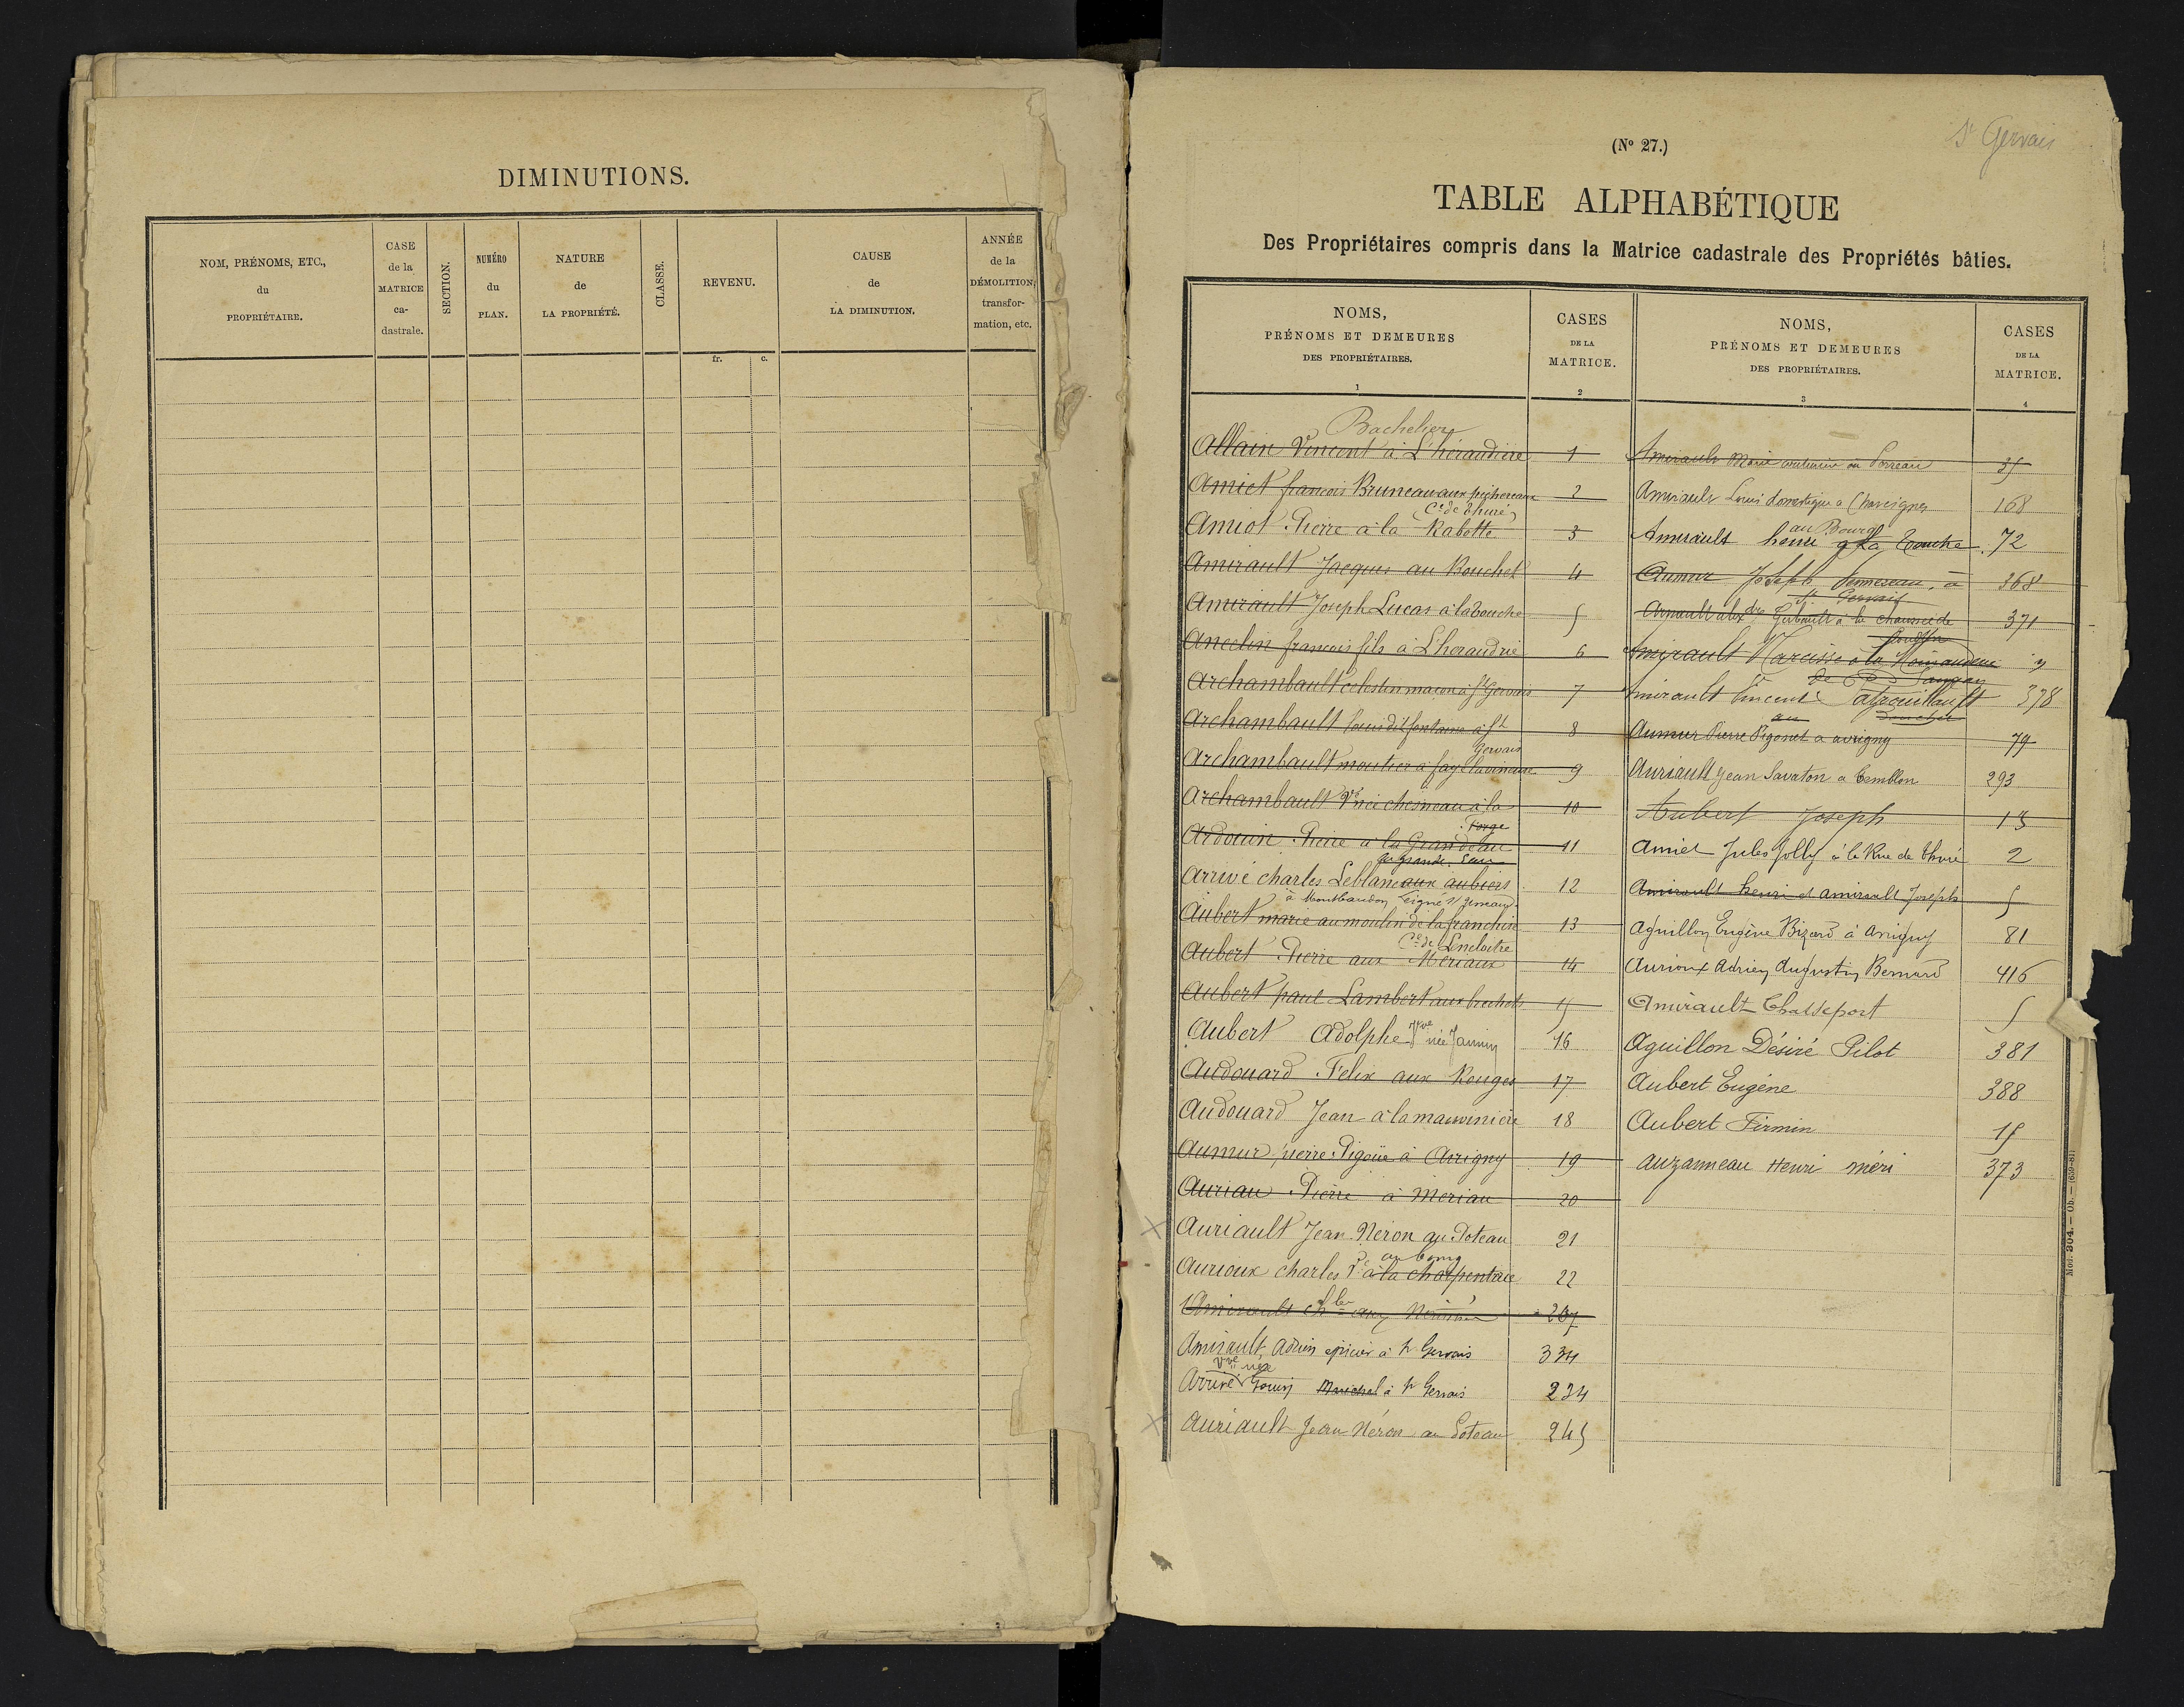 DIMINUTIONS.
NOM, PRÉNOMS, ETC.,
du
PROPRIÉTAIRE.
CASE
de la
MATRICE
ca-
dastrale.
SECTION.
NUMÉRO
du
PLAN.
NATURE
de
LA PROPRIÉTÉ.
CLASSE.
REVENU.
fr. c.
CAUSE
de
LA DIMINUTION.
ANNÉE
de la
DÉMOLITION,
transfor-
mation, etc.
St Gervais
(No 27.)
TABLE ALPHABÉTIQUE
Des Propriétaires compris dans la Matrice cadastrale des Propriétés bâties.
NOMS,
PRÉNOMS ET DEMEURES
DES PROPRIÉTAIRES.
1
CASES
DE LA
MATRICE.
2
NOMS,
PRÉNOMS ET DEMEURES
DES PROPRIÉTAIRES.
3
CASES
DE LA
MATRICE.
4
Bachelier
Allain Vincent à L'héraudière 1
Amiet francois Bruneau aux 2
Cne de thuré
Amiot Pierre à la Rabotte 3
Amirault Jacques au Bouchet 4
Amirault Joseph Lucas à la touche 5
Ancelin francois fils à L'heraudrie 6
Archambault celestin macon à St Gervais 7
Archambault louis dit fontaine à St 8
Gervais
Archambault moutier à faye la vineuse 9
Archambault Vve née chesneau à la 10
Forge
Ardouin Pierre à la Grandeau 11
la grande Eau
Arrivé charles Leblanc aux aubiers 12
à Montbaudon
Aubert marie au moulin de la franchise 13
Cne de Lencloitre
Aubert Pierre aux Meriaux 14
Aubert paul Lambert aux 15
Aubert Adolphe Vve née Jamin 16
Audouard Felix aux Rouges 17
Audouard Jean à la mauvinière 18
Aumur pierre Pigoüe à Avrigny 19
Auriau Pierre à Meriau 20
Auriault Jean Néron au Poteau 21
au bourg
Aurioux charles à la charpentrie 22
Amirault 267
Amirault Adrien epicier à St Gervais 334
Vve née
Arrivé Gouin Marichal à St Gervais 234
Auriault Jean Néron au Poteau 245
Amirault Marie 35
Amirault Louis domestique à Charcigny 168
au Bourg
Amirault henri à la touche 72
Aumur Joseph à 368
St Gervais
Arnault alexdre Guibault à la chaussée de 371
Amirault Narcisse à la
Amirault Vincent Patrouillault 378
au bouchet
Aumur Pierre Pigonet à avrigny 79
Auriault Jean Savaton à Cemblon 293
Aubert Joseph 13
Amiet Jules Jolly à la Rue de thuré 2
Amirault henri et amirault Joseph 5
Aguillon Eugène Bizard à Avrigny 81
Aurioux Adrien Augustin Bernard 416
Amirault Chasseport 5
Aguillon Désiré Pilot 381
Aubert Eugène 388
Aubert Firmin 15
auzanneau Henri méri 373
Mod. 304. — Ob. — (659-81)